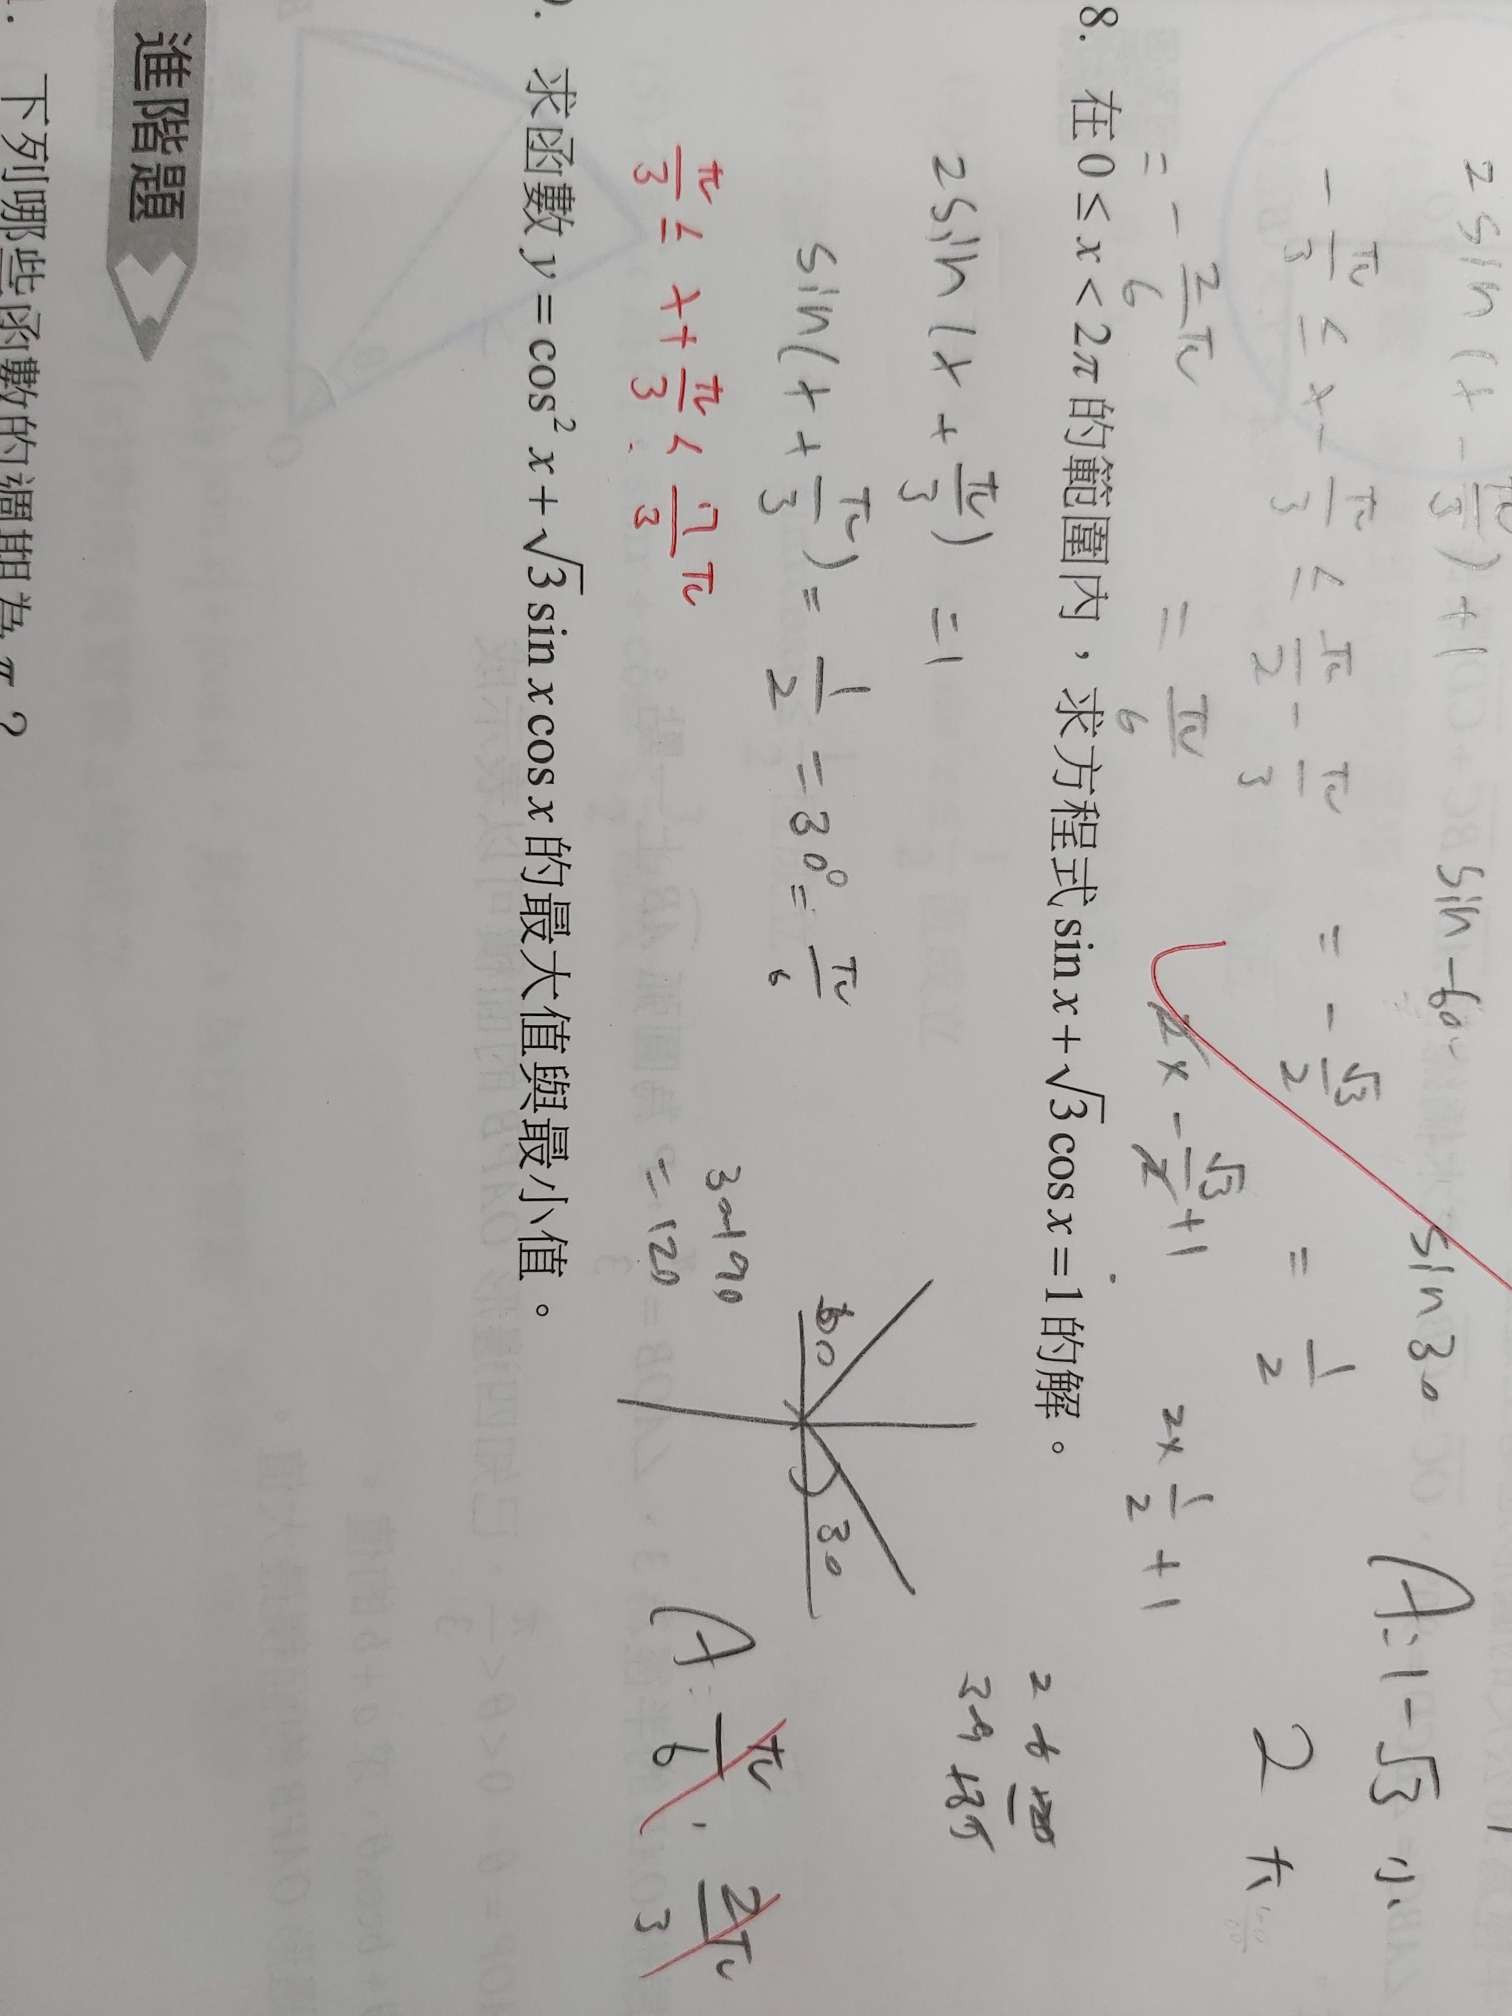 2 sin (x - π/3) + 1
sin -60° sin 30
A: 1 - √3 小
-π/3 ≤ x - π/3 ≤ π/2 - π/3 = -√3/2 = 1/2
2 大
= -2/6 π = π/6
2x - √3/2 + 1 2x 1/2 + 1
8. 在 0 ≤ x < 2π 的範圍內，求方程式 sin x + √3 cos x = 1 的解。
2 sin (x + π/3) = 1
sin(x + π/3) = 1/2 = 30° = π/6
60 30
30+90
= 120
π/3 ≤ x + π/3 < 7/3 π
A: π/6, 2π/3
求函數 y = cos² x + √3 sin x cos x 的最大值與最小值。
進階題
下列哪些函數的週期為 π？